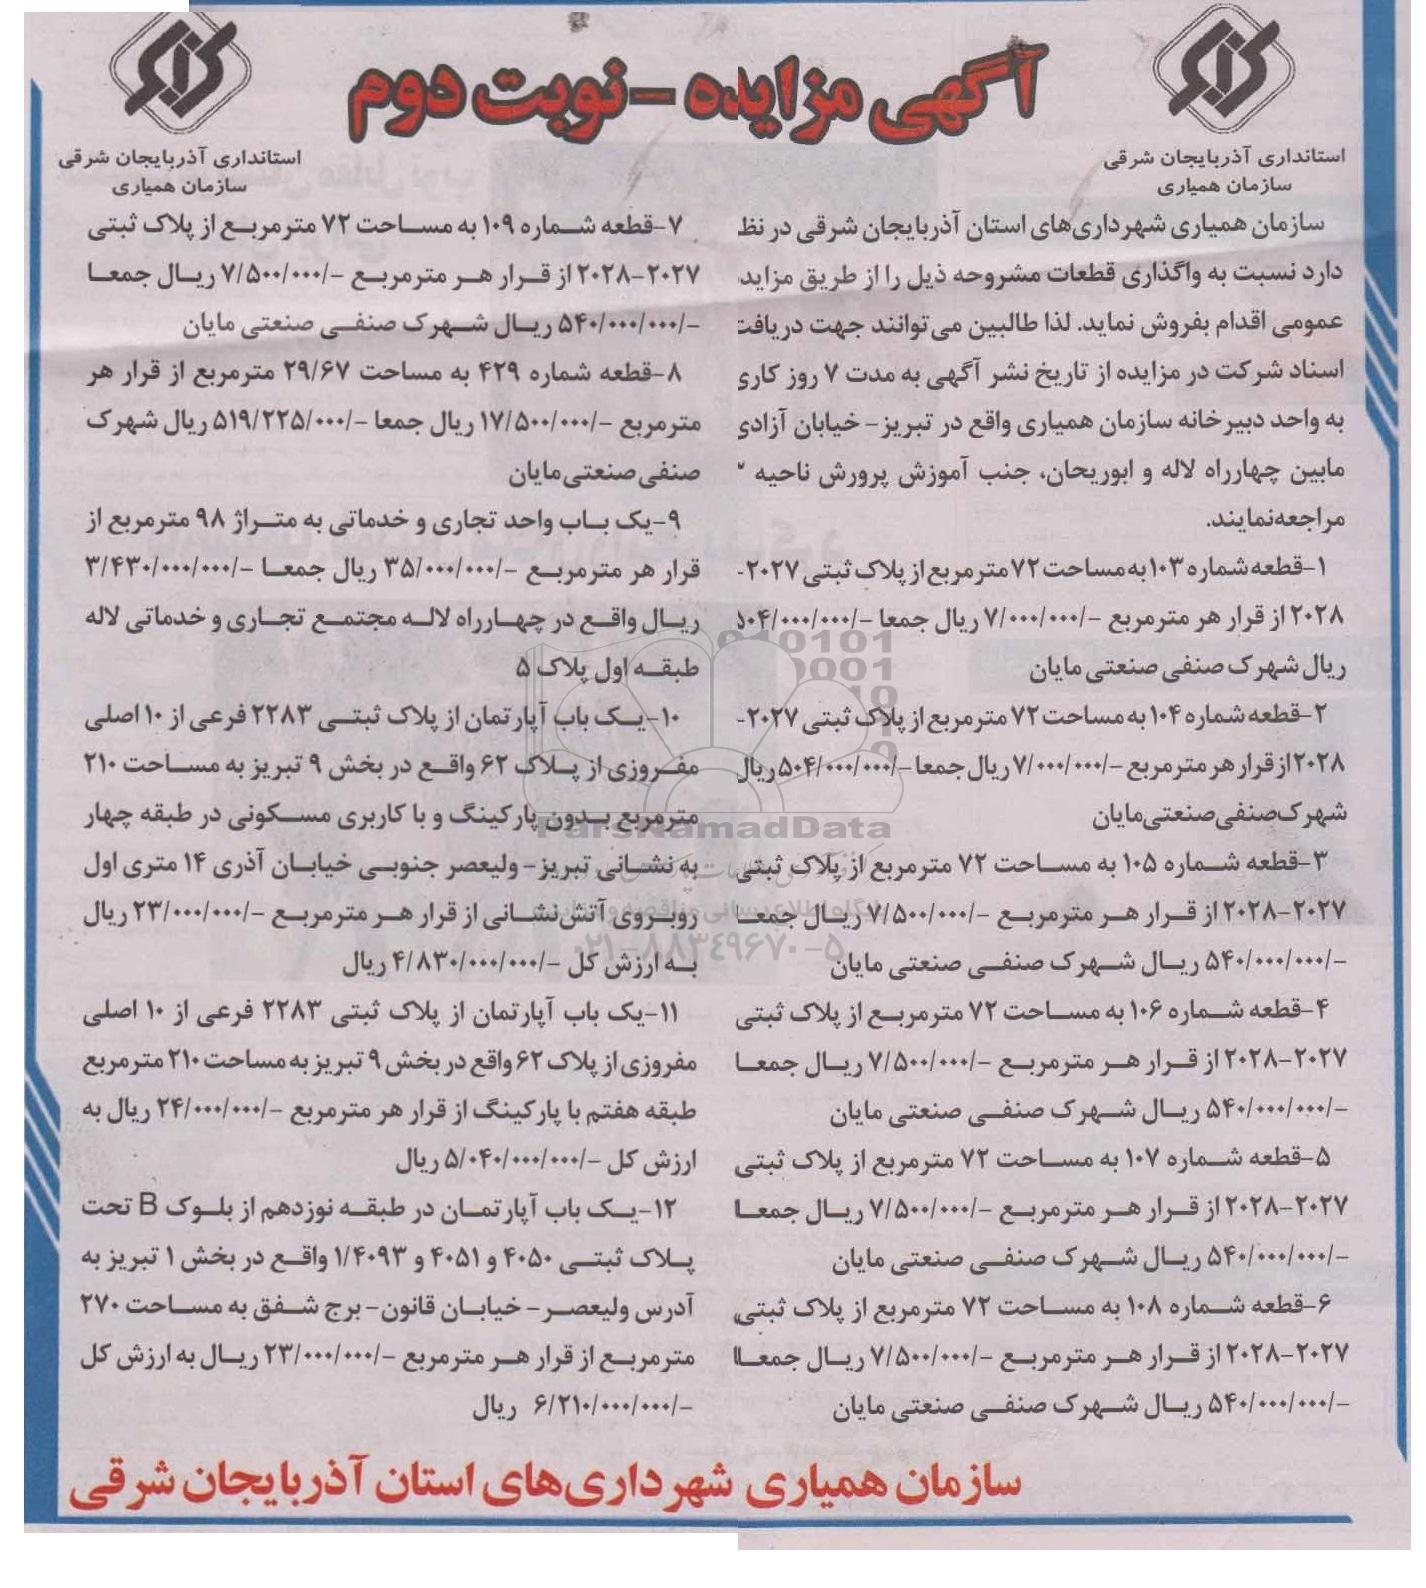 آگهی مزایده - نوبت دوم
استانداری آذربایجان شرقی
سازمان همیاری
استانداری آذربایجان شرقی
سازمان همیاری
سازمان همیاری شهرداری‌های استان آذربایجان شرقی در نظ
دارد نسبت به واگذاری قطعات مشروحه ذیل را از طریق مزایده
عمومی اقدام بفروش نماید. لذا طالبین می‌توانند جهت دریافت
اسناد شرکت در مزایده از تاریخ نشر آگهی به مدت ۷ روز کاری
به واحد دبیرخانه سازمان همیاری واقع در تبریز- خیابان آزادی
مابین چهارراه لاله و ابوریحان، جنب آموزش پرورش ناحیه
مراجعه‌نمایند.
۱-قطعه شماره ۱۰۳ به مساحت ۷۲ مترمربع از پلاک ثبتی ۲۰۲۷-
۲۰۲۸ از قرار هر مترمربع -/۷/۰۰۰/۰۰۰ ریال جمعا -/۵۰۴/۰۰۰/۰۰۰
ریال شهرک صنفی صنعتی مایان
۲-قطعه شماره ۱۰۴ به مساحت ۷۲ مترمربع از پلاک ثبتی ۲۰۲۷-
۲۰۲۸ از قرار هر مترمربع -/۷/۰۰۰/۰۰۰ ریال جمعا -/۵۰۴/۰۰۰/۰۰۰ ریال
شهرک صنفی صنعتی مایان
۳-قطعه شماره ۱۰۵ به مساحت ۷۲ مترمربع از پلاک ثبتی
۲۰۲۷-۲۰۲۸ از قرار هر مترمربع -/۷/۵۰۰/۰۰۰ ریال جمعا
-/۵۴۰/۰۰۰/۰۰۰ ریال شهرک صنفی صنعتی مایان
۴-قطعه شماره ۱۰۶ به مساحت ۷۲ مترمربع از پلاک ثبتی
۲۰۲۷-۲۰۲۸ از قرار هر مترمربع -/۷/۵۰۰/۰۰۰ ریال جمعا
-/۵۴۰/۰۰۰/۰۰۰ ریال شهرک صنفی صنعتی مایان
۵-قطعه شماره ۱۰۷ به مساحت ۷۲ مترمربع از پلاک ثبتی
۲۰۲۷-۲۰۲۸ از قرار هر مترمربع -/۷/۵۰۰/۰۰۰ ریال جمعا
-/۵۴۰/۰۰۰/۰۰۰ ریال شهرک صنفی صنعتی مایان
۶-قطعه شماره ۱۰۸ به مساحت ۷۲ مترمربع از پلاک ثبتی
۲۰۲۷-۲۰۲۸ از قرار هر مترمربع -/۷/۵۰۰/۰۰۰ ریال جمعا
-/۵۴۰/۰۰۰/۰۰۰ ریال شهرک صنفی صنعتی مایان
۷-قطعه شماره ۱۰۹ به مساحت ۷۲ مترمربع از پلاک ثبتی
۲۰۲۷-۲۰۲۸ از قرار هر مترمربع -/۷/۵۰۰/۰۰۰ ریال جمعا
-/۵۴۰/۰۰۰/۰۰۰ ریال شهرک صنفی صنعتی مایان
۸-قطعه شماره ۴۲۹ به مساحت ۲۹/۶۷ مترمربع از قرار هر
مترمربع -/۱۷/۵۰۰/۰۰۰ ریال جمعا -/۵۱۹/۲۲۵/۰۰۰ ریال شهرک
صنفی صنعتی مایان
۹-یک باب واحد تجاری و خدماتی به متراژ ۹۸ مترمربع از
قرار هر مترمربع -/۳۵/۰۰۰/۰۰۰ ریال جمعا -/۳/۴۳۰/۰۰۰/۰۰۰
ریال واقع در چهارراه لاله مجتمع تجاری و خدماتی لاله
طبقه اول پلاک ۵
۱۰-یک باب آپارتمان از پلاک ثبتی ۲۲۸۳ فرعی از ۱۰ اصلی
مفروزی از پلاک ۶۲ واقع در بخش ۹ تبریز به مساحت ۲۱۰
مترمربع بدون پارکینگ و با کاربری مسکونی در طبقه چهار
به نشانی تبریز- ولیعصر جنوبی خیابان آذری ۱۴ متری اول
روبروی آتش‌نشانی از قرار هر مترمربع -/۲۳/۰۰۰/۰۰۰ ریال
به ارزش کل -/۴/۸۳۰/۰۰۰/۰۰۰ ریال
۱۱-یک باب آپارتمان از پلاک ثبتی ۲۲۸۳ فرعی از ۱۰ اصلی
مفروزی از پلاک ۶۲ واقع در بخش ۹ تبریز به مساحت ۲۱۰ مترمربع
طبقه هفتم با پارکینگ از قرار هر مترمربع -/۲۴/۰۰۰/۰۰۰ ریال به
ارزش کل -/۵/۰۴۰/۰۰۰/۰۰۰ ریال
۱۲-یک باب آپارتمان در طبقه نوزدهم از بلوک B تحت
پلاک ثبتی ۴۰۵۰ و ۴۰۵۱ و ۱/۴۰۹۳ واقع در بخش ۱ تبریز به
آدرس ولیعصر- خیابان قانون- برج شفق به مساحت ۲۷۰
مترمربع از قرار هر مترمربع -/۲۳/۰۰۰/۰۰۰ ریال به ارزش کل
-/۶/۲۱۰/۰۰۰/۰۰۰ ریال
سازمان همیاری شهرداری‌های استان آذربایجان شرقی
ParsNamadData
۰۲۱-۸۸۳۴۹۶۷۰-۵